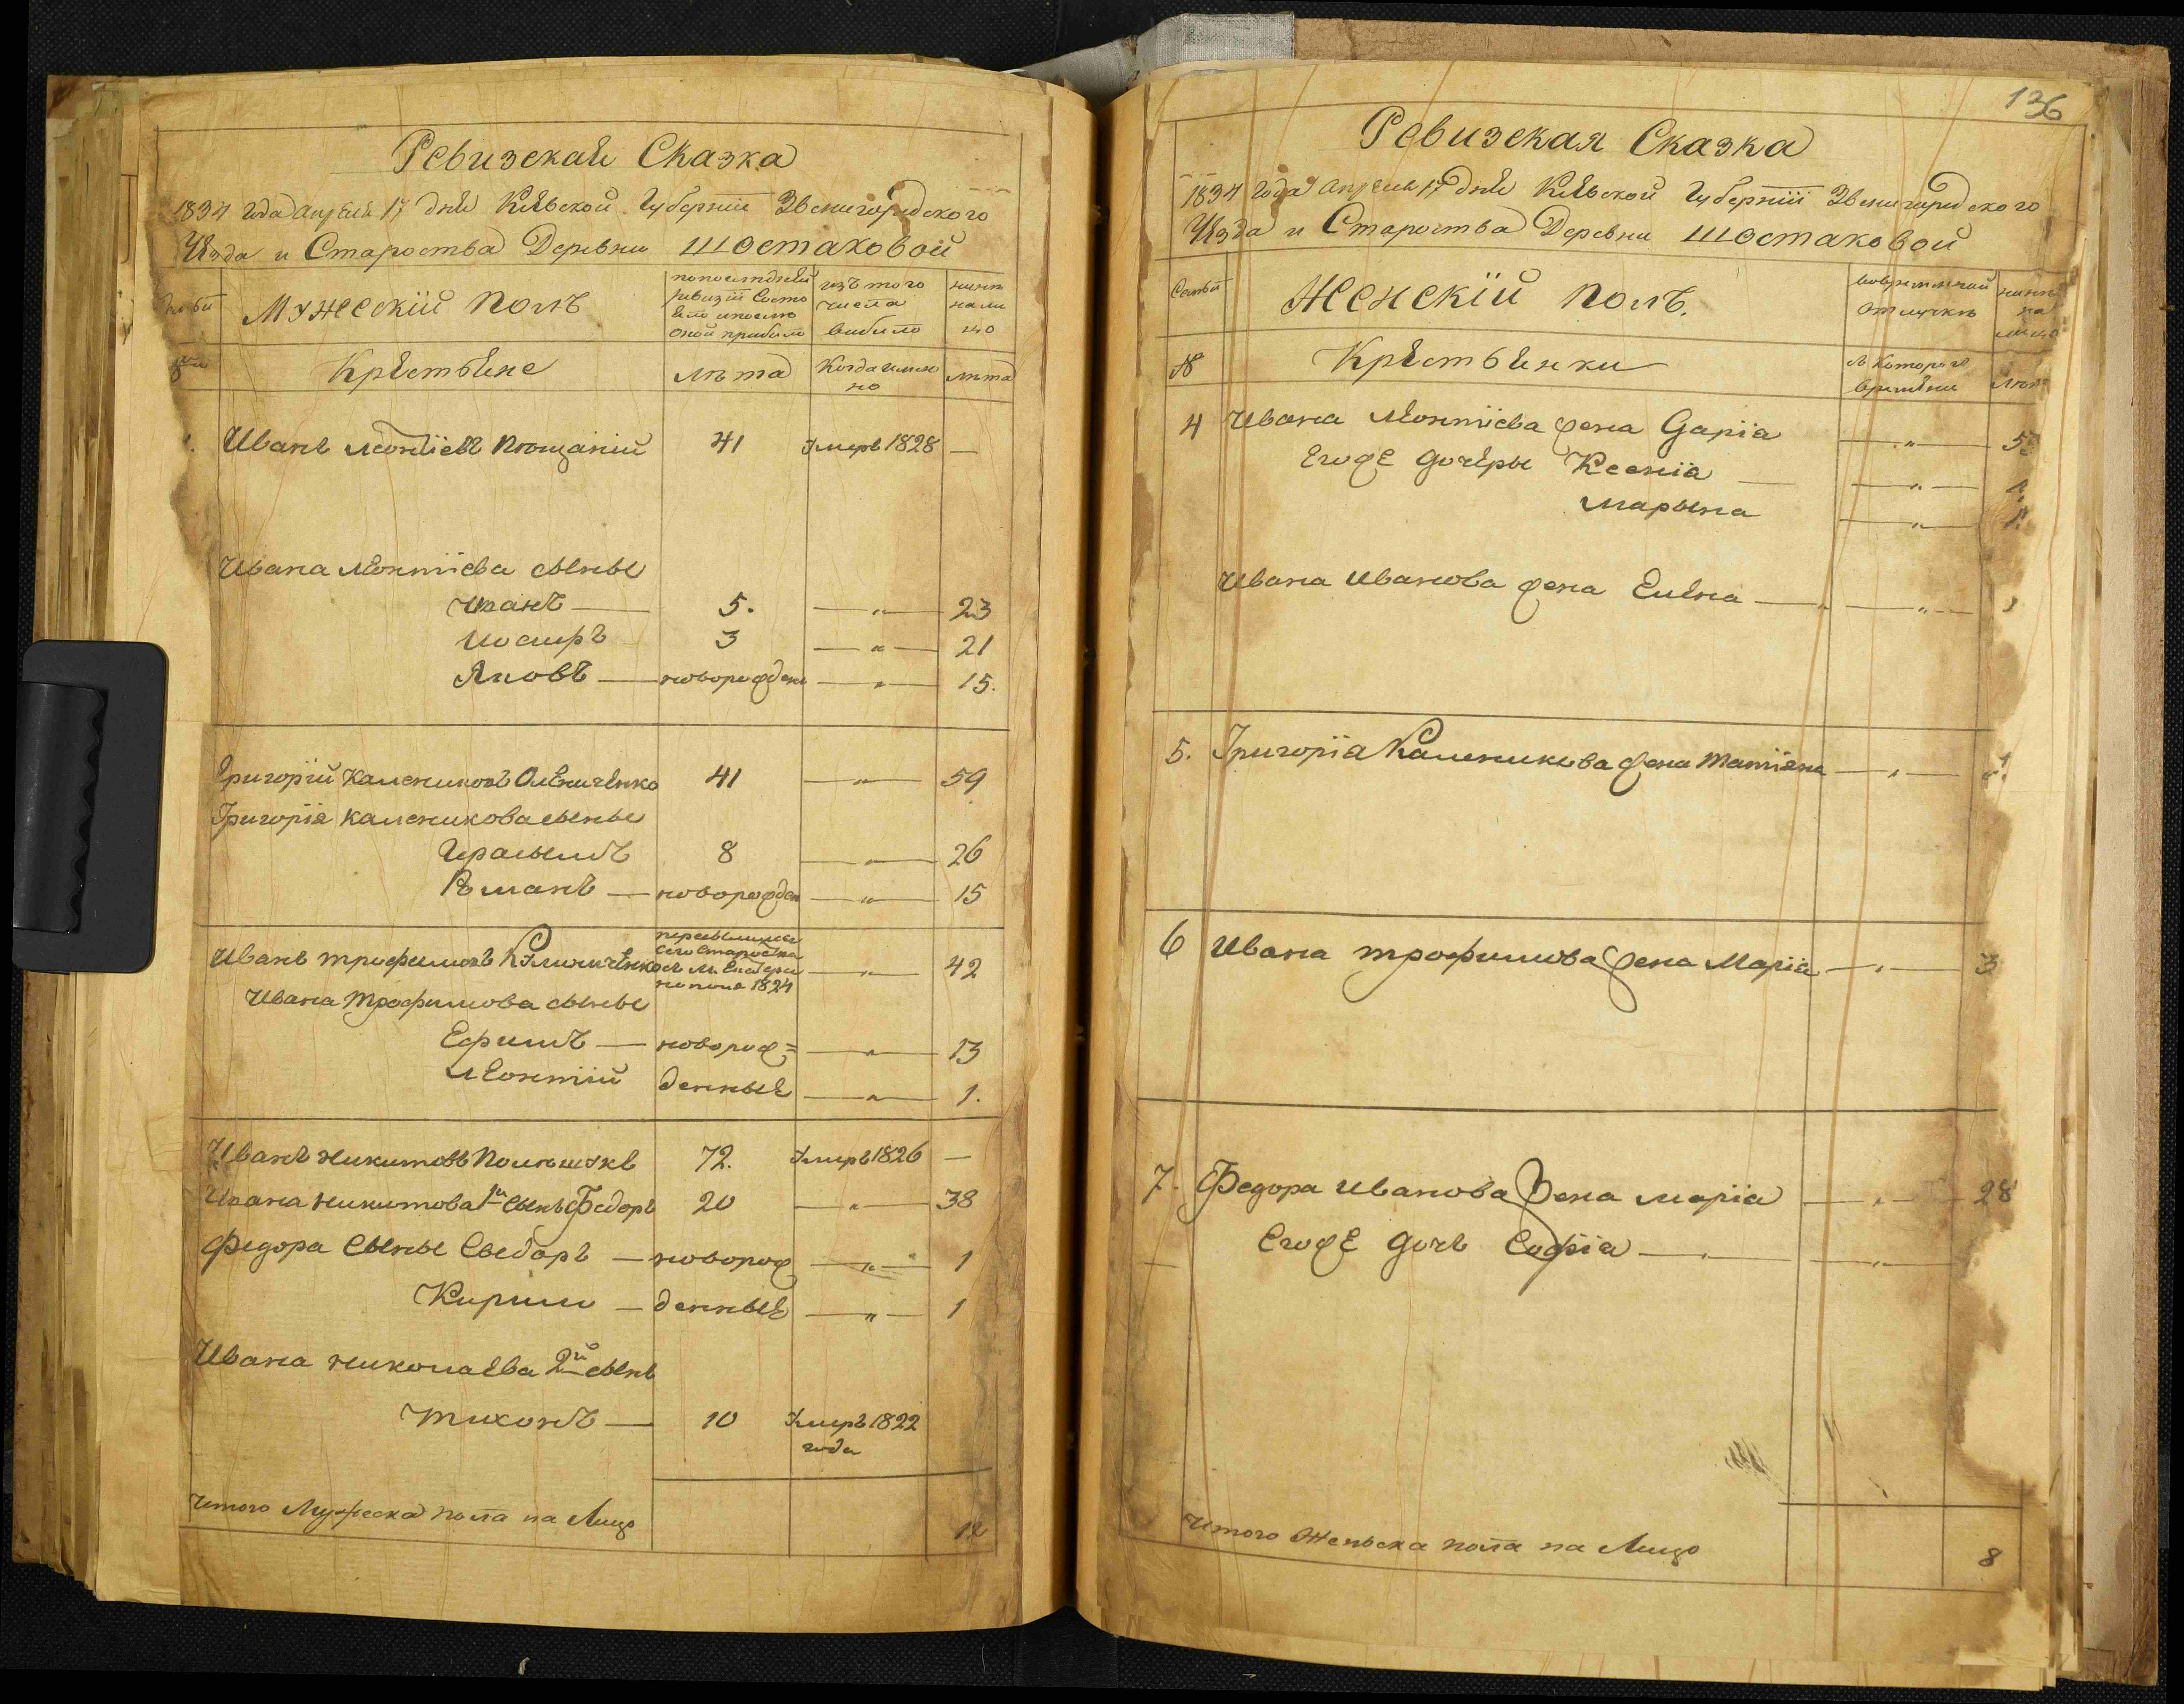 Ревизская Сказка
1834 года апреля 17 дня Кіевской Губерніи Звенигородского
Уѣзда и Староства Деревни Шостаковой
Семьи
Мужескій полъ
по последней
ревизіи Состо
яло и после
оной прибыло
изъ того
числа
выбыло
нынѣ
на ли
цо
Крестьяне
лѣта
Когда имен
но
лѣта
Иванъ Леонтіевъ
41
Умеръ 1828
—
Ивана Леонтіева сыны
Иванъ — 5. — „ — 23
Иосифъ 3 — „ — 21
Яковъ — новорожден — „ — 15.
Григорій Калениковъ Олениченко 41 — „ — 59
Григорія Каленикова сыны
Герасымъ 8 — „ — 26
Романъ — новорожден — „ — 15
Иванъ Трофимовъ
1824
— „ — 42
Ивана Трофимова сыны
Ефимъ — новорож= — „ — 13
Леонтій денные — „ — 1.
Иванъ Никитовъ Полѣшукъ 72. Умеръ 1826 —
Ивана Никитова 1й сынъ Федоръ 20 — „ — 38
Федора Сыны Сведоръ — новорож — „ — 1
Кирили — денные — „ — 1
Ивана николаева 2й сынъ
Тихонъ — 10 Умеръ 1822
года
Итого Мужеска пола на Лицо 12
136
Ревизская Сказка
1834 года апреля 17 дня Кіевской Губерніи Звенигородского
Уѣзда и Староства Деревни Шостаковой
Семьи
Женскій полъ.
во временной
отлучкѣ
нынѣ
на
лицо
№
Крестьянки
съ Которого
времени
лѣта
4 Ивана Леонтіева жена Дарія — „ —
Егоже дочеры Ксенія — — „ —
Марына — „ —
Ивана Иванова жена Елена — „ — „ —
5. Григорія Каленикова жена Татіяна — „ —
6 Ивана Трофимова жена Марія — „ — 3
7. Федора Иванова Жена Марія — „ — 28
Егоже дочь Софія — „ — „ —
Итого Женьска пола на Лицо 8